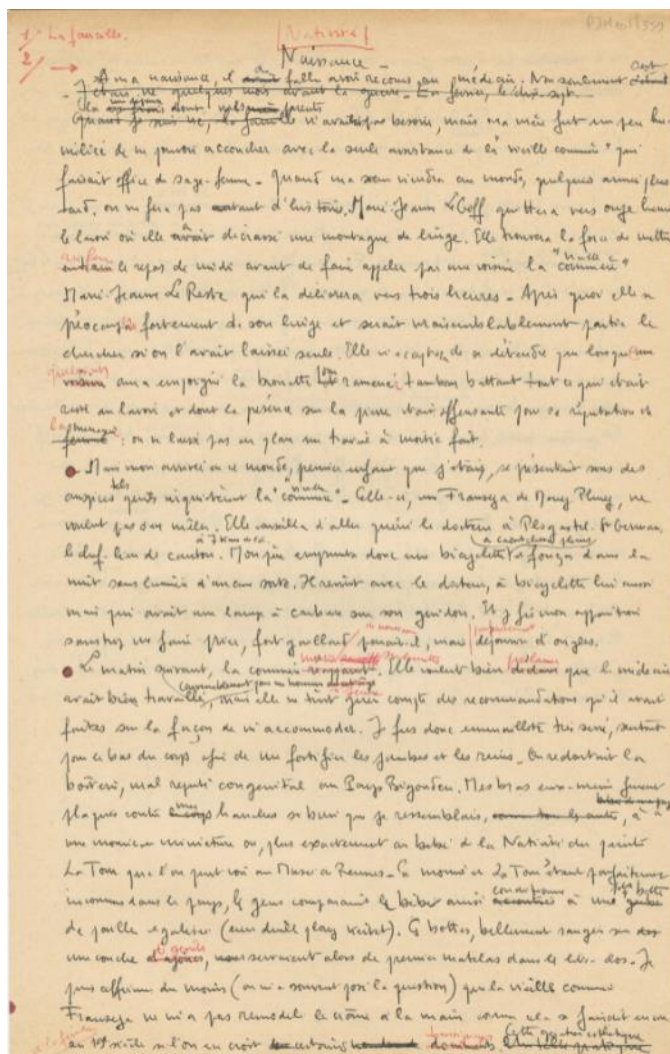 1/ La famille.
[Nativité]
2/ →
Naissance -
A ma naissance, il a fallu avoir recours au médecin. Non seulement
J'étais né quelques mois avant la guerre - En février, le dix-sept.
Quand je suis né, la famille n'avait pas besoin, mais ma mère fut un peu hu-
miliée de ne pouvoir accoucher avec la seule assistance de la vieille "commère" qui
faisait office de sage-femme - Quand ma sœur viendra au monde, quelques années plus
tard, on ne fera pas autant d'histoires. Marie-Jeanne Le Goff quittera vers onze heures
le lavoir où elle avait décrassé une montagne de linge. Elle trouvera la force de mettre
le repas de midi avant de faire appeler par une voisine la "vieille commère"
Marie-Jeanne Le Reste qui la délivrera vers trois heures - Après quoi elle se
préoccupe fortement de son linge et serait vraisemblablement partie le
chercher si on l'avait laissée seule. Elle n'accepte de se détendre que lorsque
voisine aura empoigné la brouette et ramené, tambour battant tout ce qui était
resté au lavoir et dont la présence sur la pierre était offensante pour sa réputation de
la ménagère : on ne laisse pas en plan un travail à moitié fait.
Mais mon arrivée en ce monde, premier enfant que j'étais, se présentait sous des
auspices tels qu'ils inquiétèrent la "vieille commère" - Celle-ci, une Franseza de Pouy Pluey, ne
voulut pas s'en mêler. Elle conseilla d'aller quérir le docteur à Plogastel-St Germain,
le chef-lieu de canton. Mon père emprunta donc une bicyclette à caoutchouc pleins et fonça dans la
nuit sans lumière d'aucune sorte. Il revint avec le docteur, à bicyclette lui aussi
mais qui avait une lampe à carbure sur son guidon. Et je fis mon apparition
sans trop me faire prier, fort gaillard paraît-il, mais dépourvu d'ongles.
Le matin suivant, la commère réapparut. Elle voulut bien que le médecin
avait bien travaillé, mais elle ne tint guère compte des recommandations qu'il avait
faites sur la façon de m'accommoder. Je fus donc emmailloté très serré, surtout
pour le bas du corps, afin de me fortifier les jambes et les reins. On redoutait la
boiterie, mal réputé congénital au Pays Bigouden. Mes bras eux-mêmes furent
plaqués contre mes hanches si bien que je ressemblais, à
une momie en miniature ou, plus exactement au bébé de la Nativité du peintre
La Tour que l'on peut voir au Musée de Rennes - La momie et La Tour étant parfaitement
inconnus dans le pays, les gens comparaient le bébé ainsi à une botte
de paille égalisée (eun duilh plouz keitet). Ces bottes, bellement rangées sur
une couche d'ajoncs, nous servaient alors de premier matelas dans le lit-clos - Je
puis affirmer du moins (on m'a souvent posé la question) que la vieille commère
Franseza ne m'a pas remodelé le crâne à la main comme cela se faisait encore
au 19e siècle si l'on en croit certains documents. Cette opération esthétique